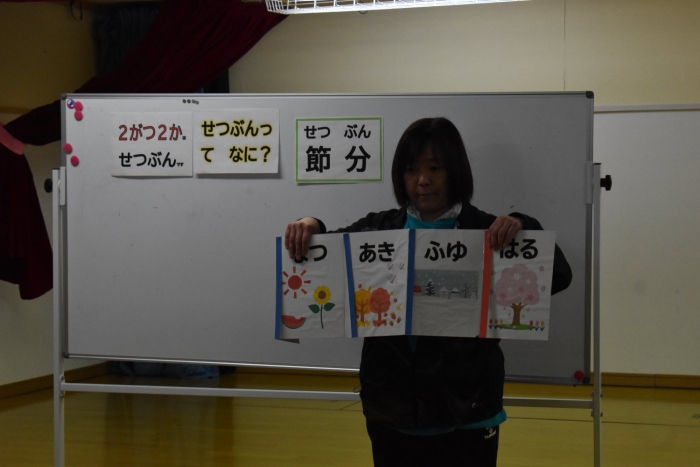 2がつ2か。
せつぶん
せつぶんっ
て なに?
せつ ぶん
節分
なつ
あき
ふゆ
はる